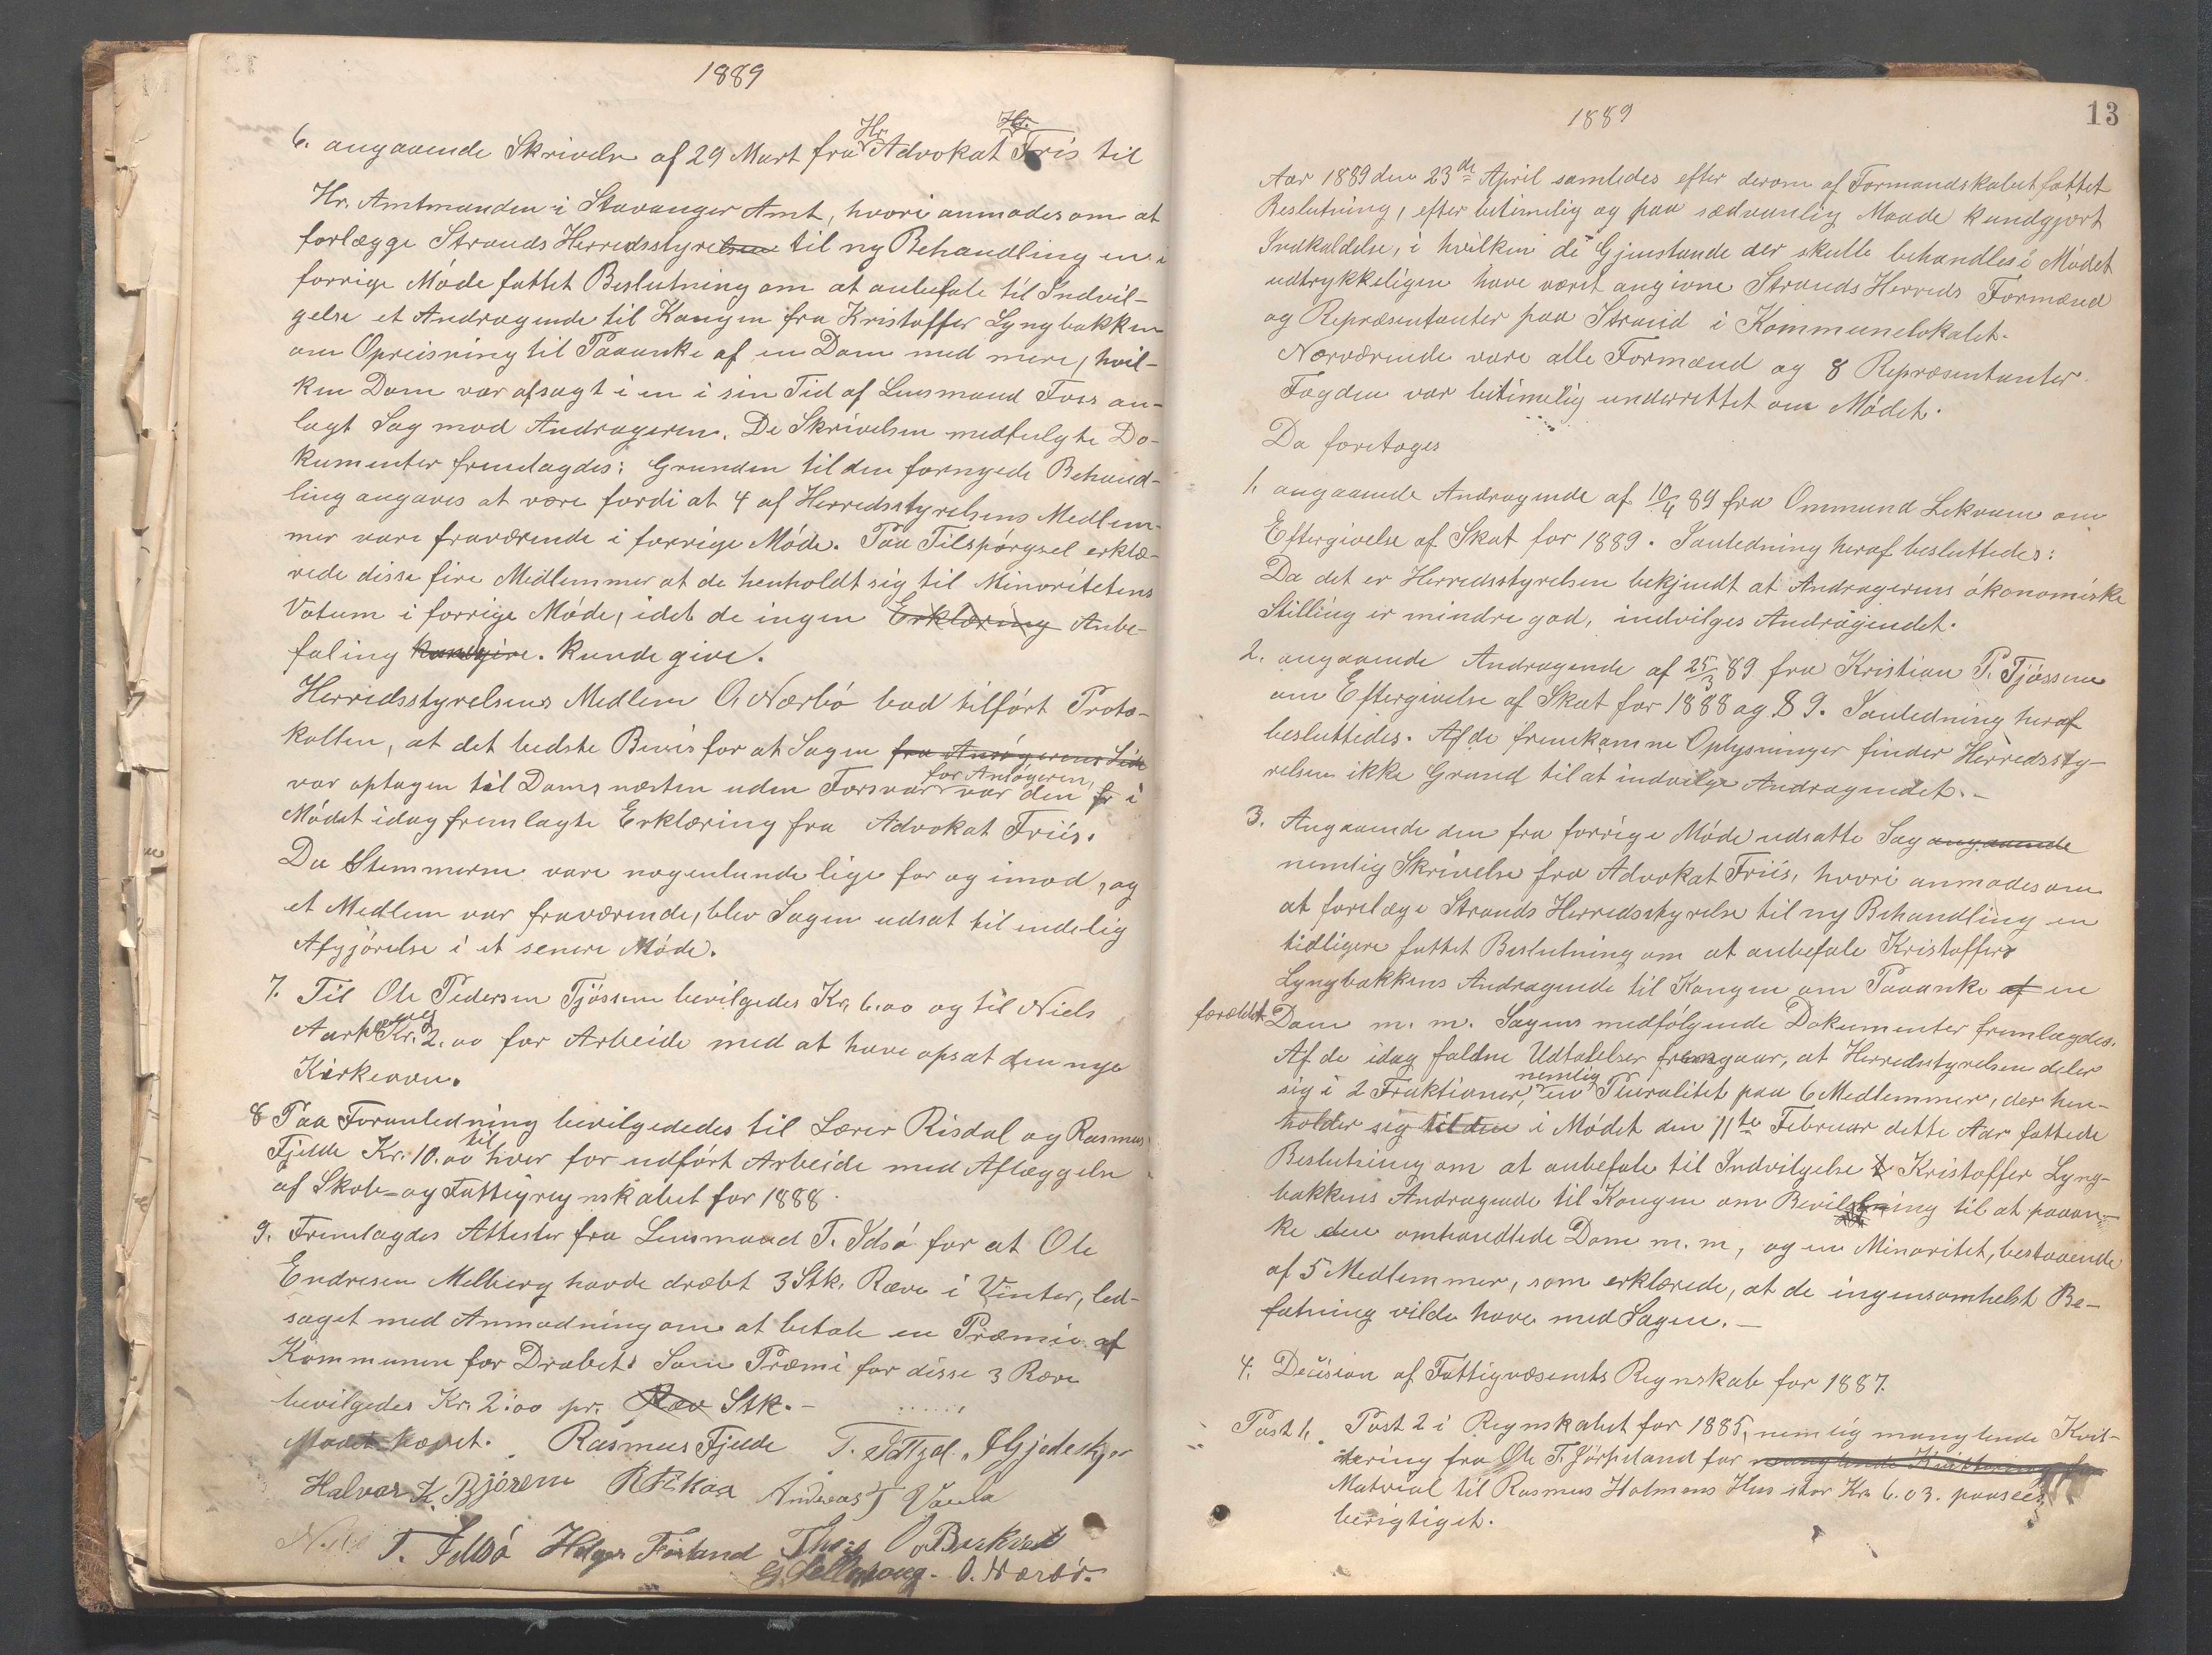 1889
6. angaaende Skrivelse af 29 Mart fra Hr Advokat Hr. Friis til
Hr. Amtmanden i Stavanger Amt, hvori anmodes om at
forlægge Strands Herredsstyrelsen til ny Behandling en i
forrige Møde fattet Beslutning om at anbefale til Indvil-
gelse et Andragende til Kongen fra Kristoffer Lyngbakken
om Opreisning til Paaanke af en Dom med mere, hvil-
ken Dom var afsagt i en i sin Tid af Lensmand Foss an-
lagt Sag mod Andrageren. De Skrivelsen medfulgte Do-
kumenter fremlagdes: Grunden til den fornyede Behand-
ling angaves at være fordi at 4 af Herredsstyrelsens Medlem-
mer vare fraværende i forrige Møde. Paa Tilspørgsel erklæ-
rede disse fire Medlemmer at de henholdt sig til Minoritetens
Votum i forrige Møde, idet de ingen Erklæring Anbe-
faling kunde give. kunde give.
Herredsstyrelsens Medlem O. Nærbø bad tilført Proto-
kollen, at det bedste Bevis for at Sagen fra Ansøgerens Side
var optagen til Doms næsten uden Forsvar for Ansøgeren, var den fr i
Mødet idag fremlagte Erklæring fra Advokat Friis.
Da Stemmerne vare nogenlunde lige for og imod, og
et Medlem var fraværende, blev Sagen udsat til endelig
Afgjørelse i et senere Møde.
7. Til Ole Pedersen Tjøssem bevilgedes Kr. 6.00 og til Niels
Kr. 2.00 for Arbeide med at have opsat den nye
Kirkeovn.
8 Paa Foranledning bevilgededes til Lærer Risdal og Rasmus
Fjelde Kr. 10.00 til hver for udført Arbeide med Aflæggelse
af Skole- og Fattigregnskabet for 1888.
9. Fremlagdes Attester fra Lensmand T. Idsø for at Ole
Endresen Melberg havde dræbt 3 Stk. Ræve i Vinter, led-
saget med Anmodning om at betale en Præmie af
Kommunen for Drabet. Som Præmi for disse 3 Ræve
bevilgedes Kr. 2.00 pr. Ræv Stk. -
Mødet hævet. Rasmus Fjelde T.
Halvor K. Bjøren R Fiskaa Andreas T
T. Idsø Helger Førland Thore O. Buskved
O. Nærbø.
1889
13
Aar 1889 den 23de April samledes efter derom af Formandskabet fattet
Beslutning, efter betimelig og paa sædvanlig Maade kundgjort
Indkaldelse, i hvilken de Gjenstande der skulle behandles i Mødet
udtrykkeligen have været angivne Strands Herreds Formænd
og Repræsentanter paa Strand i Kommunelokalet.
Nærværende vare alle Formænd og 8 Repræsentanter.
Fogden var betimelig underrettet om Mødet.
Da foretoges
1. angaaende Andragende af 10/4 89 fra Ommund Lekvam om
Eftergivelse af Skat for 1889. Ianledning heraf besluttedes:
Da det er Herredsstyrelsen bekjendt at Andragerens økonomiske
Stilling er mindre god, indvilges Andragendet.
2. angaaende Andragende af 25/3 89 fra Kristian P. Tjøssem
om Eftergivelse af Skat for 1888 og 89. Ianledning heraf
besluttedes. Af de fremkomne Oplysninger finder Herredssty-
relsen ikke Grund til at indvilge Andragendet. -
3. Angaaende den fra forrige Møde udsatte Sag angaaende
nemlig Skrivelse fra Advokat Friis, hvori anmodes om
at forelæge Strands Herredsstyrelse til ny Behandling en
tidligere fattet Beslutning om at anbefale Kristoffer
Lyngbakkens Andragende til Kongen om Paaanke af en
forældet Dom m. m. Sagens medfølgende Dokumenter fremlagdes.
Af de idag faldne Udtalelser fremgaar, at Herredsstyrelsen deler
sig i 2 Fraktioner, nemlig en Pluralitet paa 6 Medlemmer, der hen-
holder sig til den i Mødet den 11te Februar dette Aar fattede
Beslutning om at anbefale til Indvilgelse t Kristoffer Lyng-
bakkens Andragende til Kongen om Bevilgning til at paaan-
ke den omhandlede Dom m. m, og en Minoritet, bestaaende
af 5 Medlemmer, som erklærede, at de ingensomhelst Be-
fatning vilde have med Sagen. -
4. Decision af Fattigvæsenets Regnskab for 1887.
Post 1. Post 2 i Regnskabet for 1885, nemlig manglende Kvit-
tering fra Ole T. Jørpeland for manglende Kvittering for
Material til Rasmus Holmens Hus stor Kr. 6.03. paasees
berigtiget.